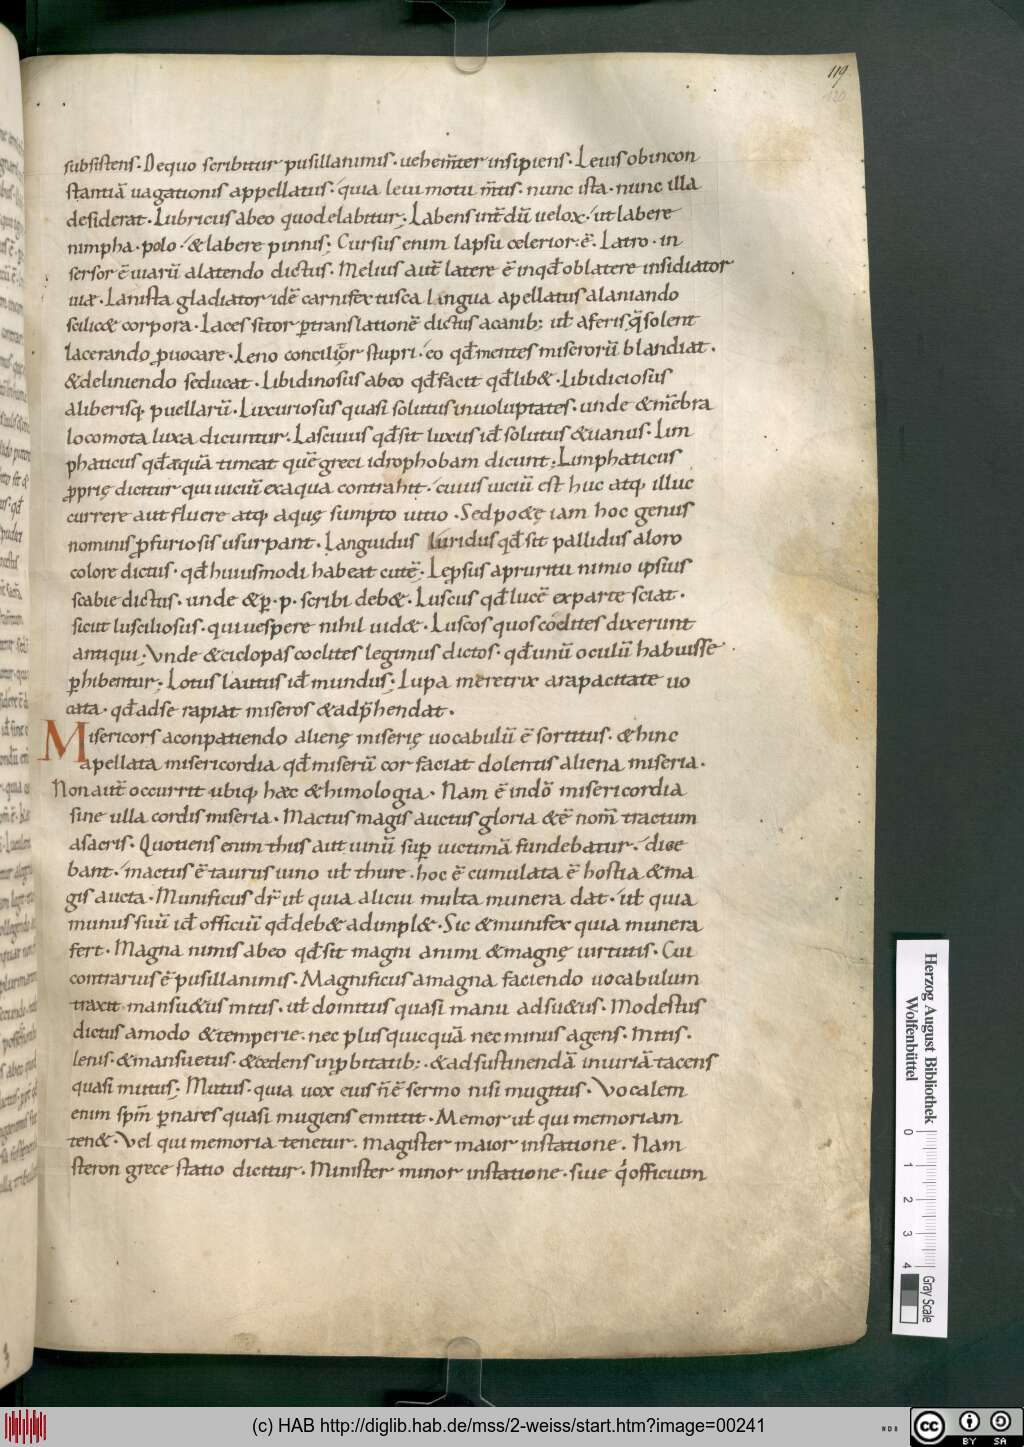 119
120
subsistens. Dequo scribitur pusillanimis. uehem̄ter insipiens. Leuis obincon
stantiā uagationis appellatus. quia leui motu m̄tis. nunc ista. nunc illa
desiderat. Lubricus abeo quodelabitur; Labens int̄dū uelox. ut labere
nimpha. polo. & labere pinnis; Cursus enim lapsu celerior. ē. Latro. in
sersor ē uiarū alatendo dictus. Melius aut̄ latere ē inqđ oblatere insidiator
uiæ. Lanista gladiator idē carnifex tusca lingua apellatus alaniando
scilic& corpora. Lacessitor ꝑ translationē dictus acanib; ut̄ aferis, q̄ solent
lacerando ꝓuocare. Leno conciliator stupri. eo qđ mentes miserorū blandiat.
& deliniendo seducat. Libidinosus abeo qđ facit qđ lib&. Libidiciosus
aliberisq; puellarū. Luxuriosus quasi solutus inuoluptates. unde & mēbra
locomota luxa dicuntur. Lasciuus qđ sit luxus iđ solutus & uanus. Lim
phaticus qđ aquā timeat quē greci idrophobam dicunt; Limphaticus
ꝓprię dicitur qui uiciū exaqua contrahit. cuius uiciū est huc atq; illuc
currere aut fluere atq; aquę sumpto uitio. Sed po&ę iam hoc genus
nominis ꝓ furiosis usurpant. Languidus luridus qđ sit pallidus aloro
colore dictus. qđ huiusmodi habeat cutē; Lepsus apruritu nimio ipsius
scabie dictus. unde & ꝑ. p. scribi deb&. Luscus qđ lucē exparte sciat.
sicut lusciliosus. qui uespere nihil uid&. Luscos quos coclites dixerunt
antiqui; Vnde & ciclopas coclites legimus dictos. qđ unū oculū habuisse
ꝑhibentur; Lotus lautus iđ mundus; Lupa meretrix arapacitate uo
cata. qđ adse rapiat miseros & adp̄hendat.
Misericors aconpatiendo alienę miserię uocabulū ē sortitus. & hinc
apellata misericordia qđ miserū cor faciat dolentis aliena miseria.
Non aut̄ occurrit ubiq; hæc & himologia. Nam ē indō misericordia
sine ulla cordis miseria. Mactus magis auctus gloria & ē nom̄ tractum
asacris. Quotiens enim thus aut uinū sup̱ uictimā fundebatur. dice
bant. mactus ē taurus uino ut̄ thure. hoc ē cumulata ē hostia & ma
gis aucta. Munificus dr̄ ut̄ quia alicui multa munera dat. ut̄ quia
munus suū iđ officiū qđ deb& adimpl&. Sic & munifex quia munera
fert. Magna nimis abeo qđ sit magni animi & magnę uirtutis. Cui
contrarius ē pusillanimis. Magnificus amagna faciendo uocabulum
traxit. mansu&us mitis. ut̄ domitus quasi manu adsu&us. Modestus
dictus amodo & temperie. nec plus quicquā nec minus agens. Mitis.
lenis. & mansuetus. & cedens inꝓbitatib; & adsustinendā iniuriā tacens
quasi mutus; Mutus. quia uox eius n̄ ē sermo nisi mugitus. Vocalem
enim spm̄ ꝑ nares quasi mugiens emittit. Memor ut̄ qui memoriam
ten&. Vel qui memoria tenetur. magister maior instatione. Nam
steron grece statio dicitur. Minister minor instatione. siue q officium
Herzog August Bibliothek
Wolfenbüttel
0 1 2 3 4
Gray Scale
(c) HAB http://diglib.hab.de/mss/2-weiss/start.htm?image=00241
cc BY SA